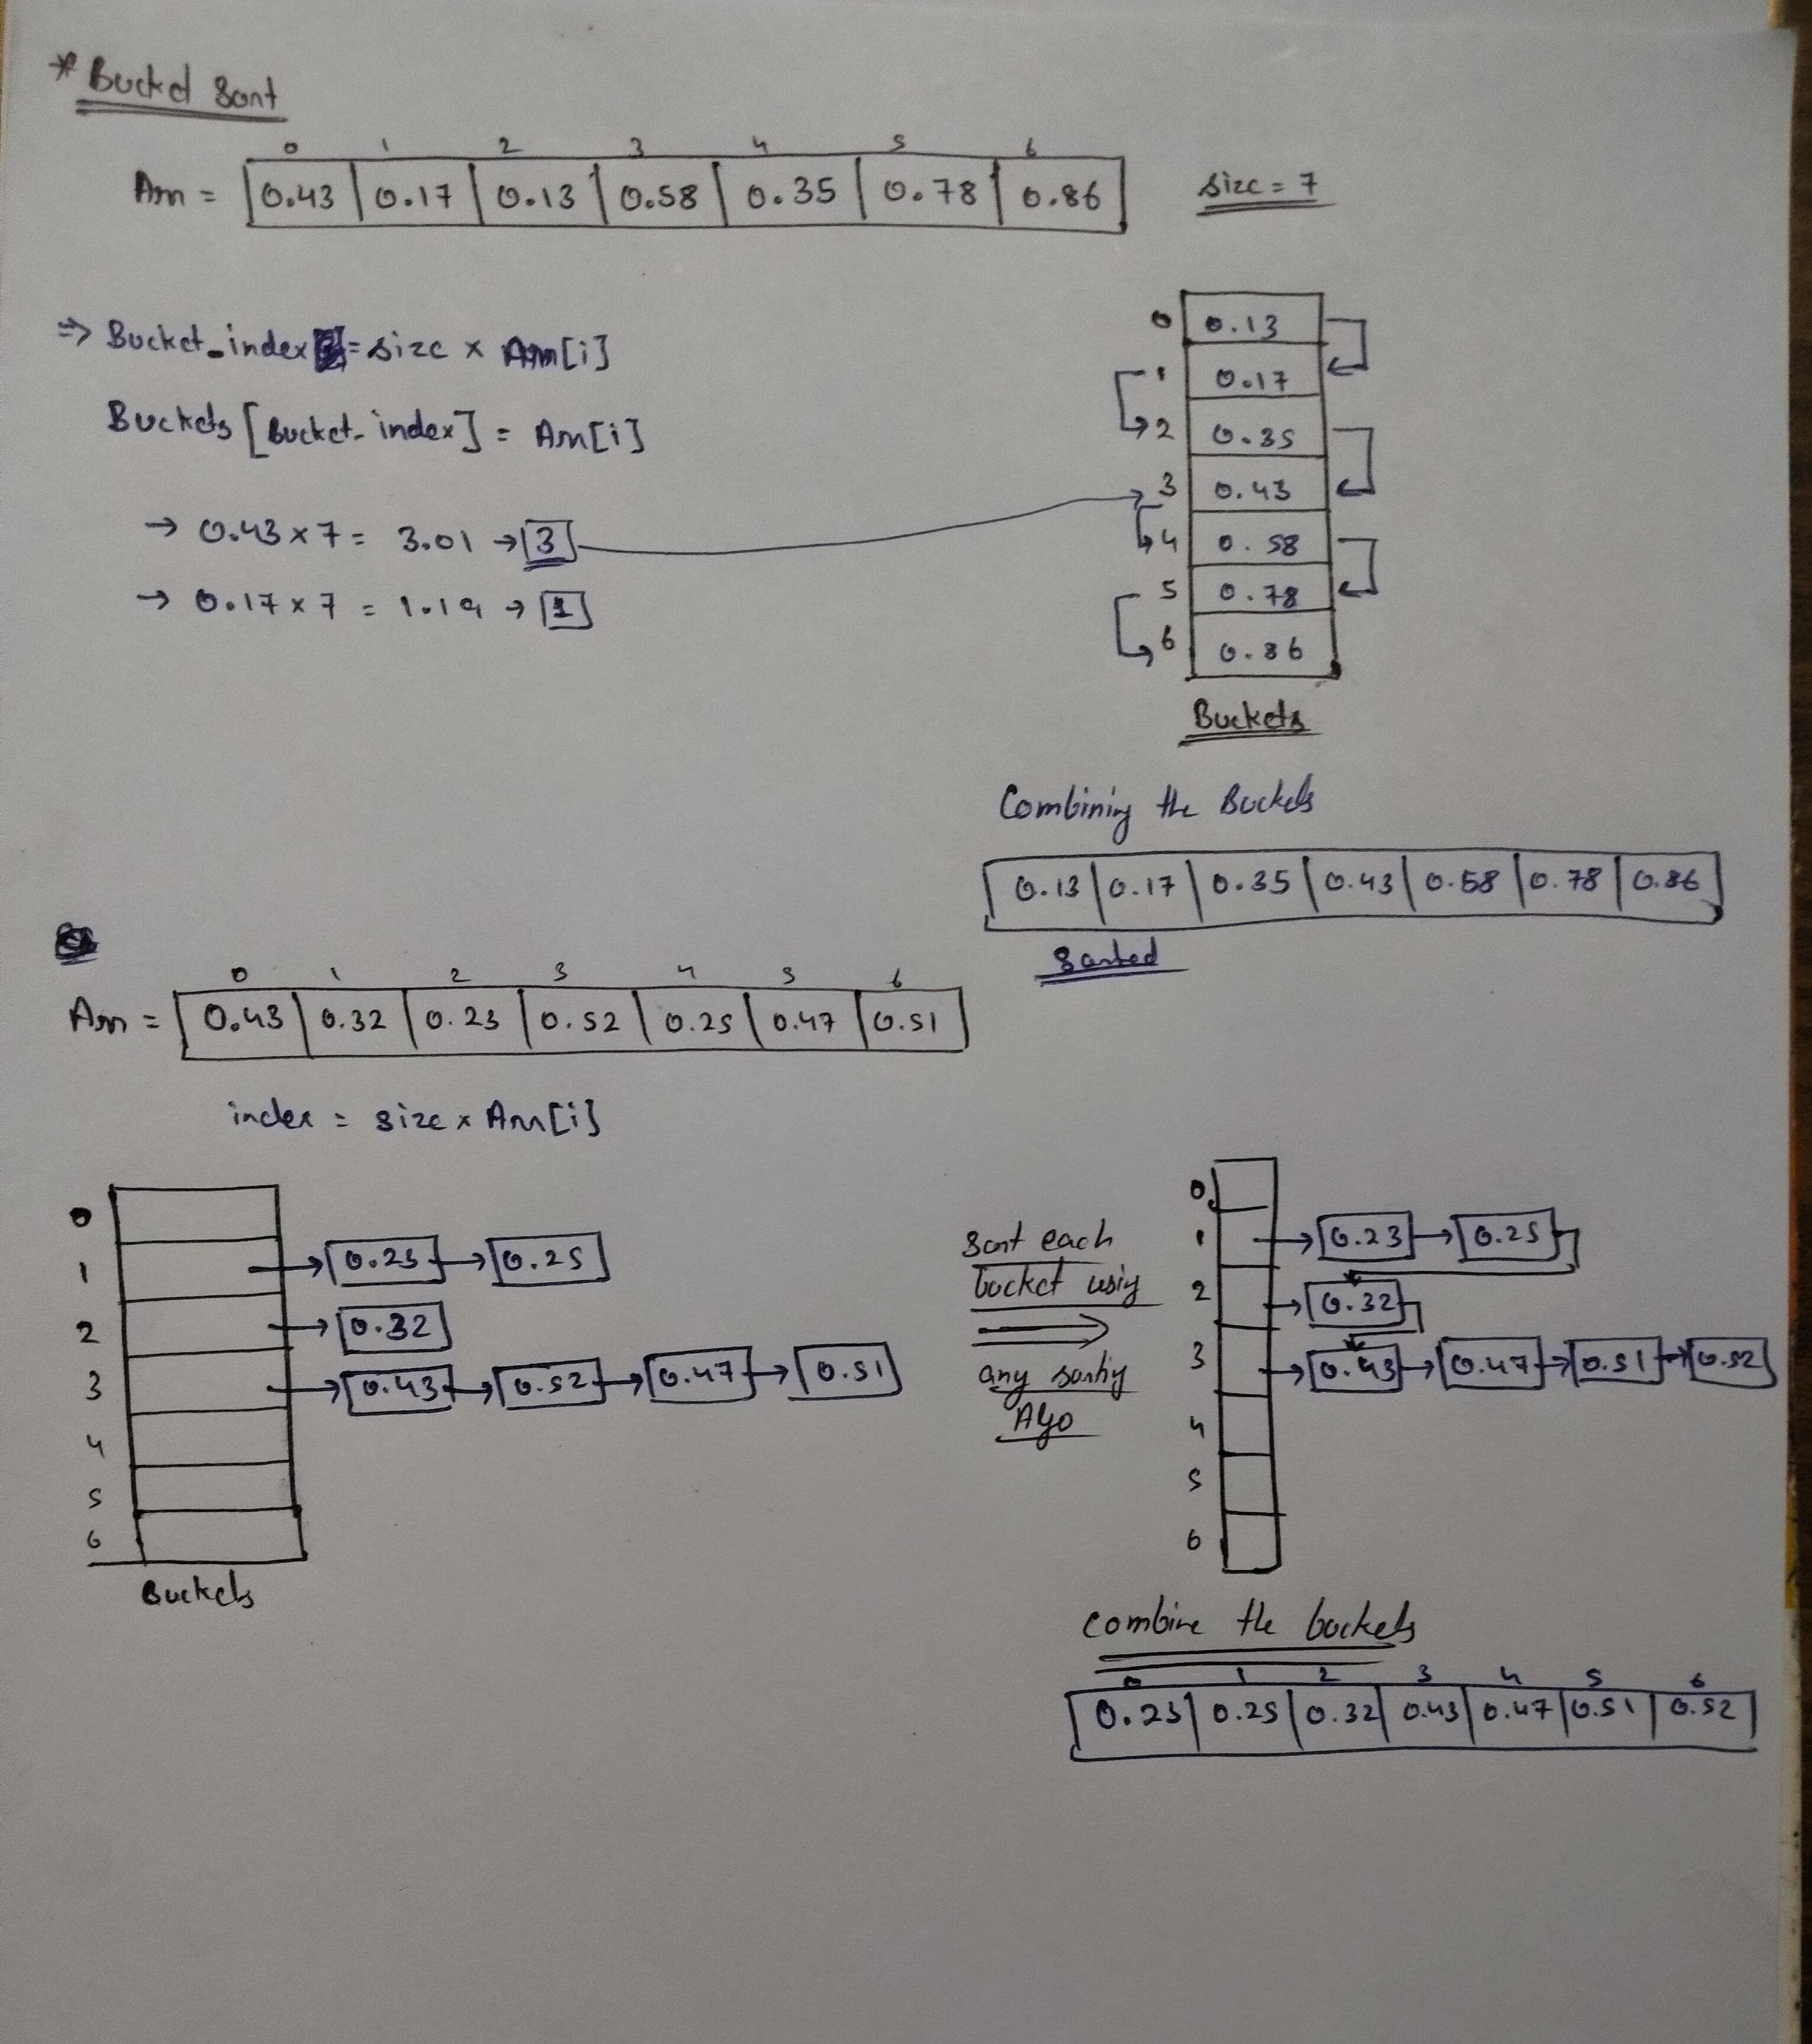 * Bucket Sort
0 1 2 3 4 5 6
Arr = 0.43 0.17 0.13 0.58 0.35 0.78 0.86
size = 7
=> Bucket_index = size x Arr[i]
Buckets [Bucket_index] = Arr[i]
→ 0.43 x 7 = 3.01 → 3
→ 0.17 x 7 = 1.19 → 1
0 0.13
1 0.17
2 0.35
3 0.43
4 0.58
5 0.78
6 0.86
Buckets
Combining the Buckets
0.13 0.17 0.35 0.43 0.58 0.78 0.86
Sorted
0 1 2 3 4 5 6
Arr = 0.43 0.32 0.23 0.52 0.25 0.47 0.51
index = size x Arr[i]
0
1 → 0.23 → 0.25
2 → 0.32
3 → 0.43 → 0.52 → 0.47 → 0.51
4
5
6
Buckets
Sort each
bucket usig
=>
any sortig
Algo
0
1 → 0.23 → 0.25
2 → 0.32
3 → 0.43 → 0.47 → 0.51 → 0.52
4
5
6
Combine the buckets
0 1 2 3 4 5 6
0.23 0.25 0.32 0.43 0.47 0.51 0.52